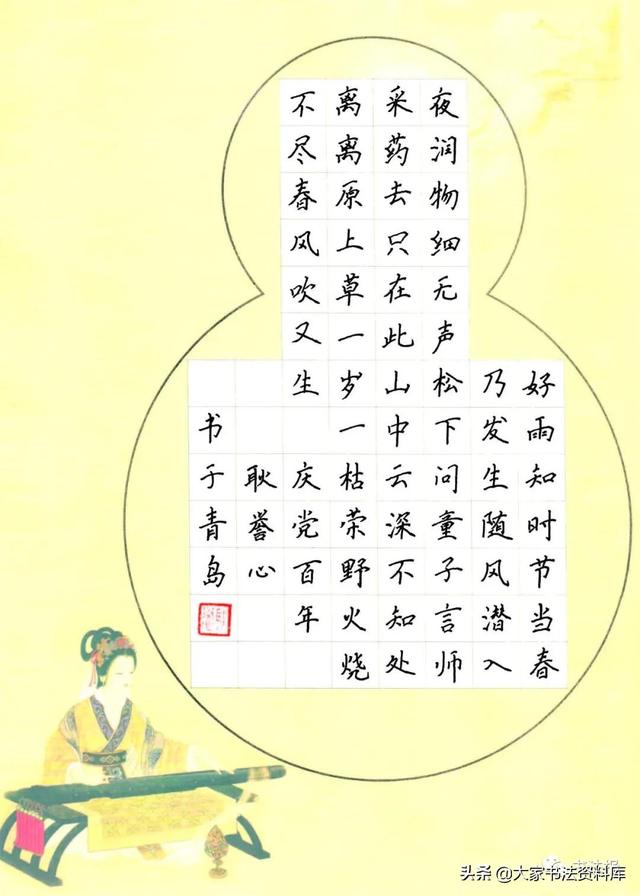 好雨知时节当春
乃发生随风潜入
夜润物细无声松下问童子言师
采药去只在此山中云深不知处
离离原上草一岁一枯荣野火烧
不尽春风吹又生 庆党百年
耿誉心
书于青岛
书法报
头条 @大家书法资料库